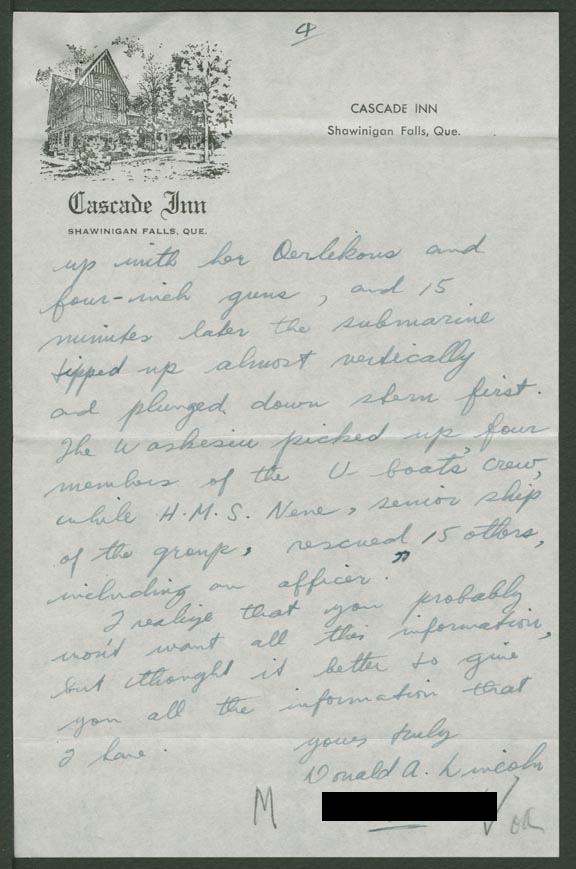 4
CASCADE INN
Shawinigan Falls, Que.
Cascade Inn
SHAWINIGAN FALLS, QUE.
up with her Oerlikons and
four-inch guns, and 15
minutes later the submarine
tipped up almost vertically
and plunged down stern first.
The Waskesiu picked up four
members of the U-boats crew,
while H.M.S. Nene, senior ship
of the group, rescued 15 others,
including an officer."
I realize that you probably
won't want all this information,
but thought it better to give
you all the information that
I have.
yours truly
Donald A. Lincoln
M